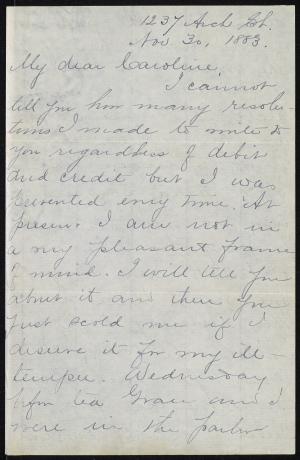 1237 Arch St.
Nov 30, 1883.
My dear Caroline,
I cannot
tell you how many resolu-
tions I made to write to
you regardless of debit
and credit but I was
prevented every time. At
present I am not in
a very pleasant frame
of mind. I will tell you
about it and then you
just scold me if I
deserve it for my ill-
temper. Wednesday
after tea Grace and I
were in the parlor